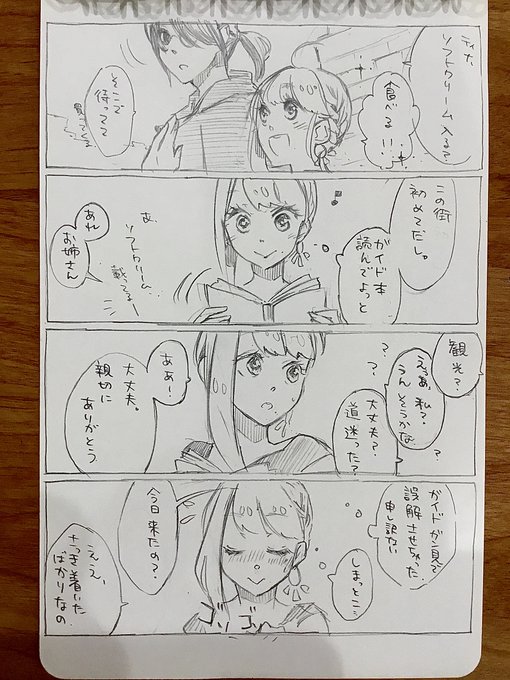 ティナ
ソフトクリーム入るで
食べる!!
そこで
待ってて
買ってくる
この街
初めてだし。
ガイド本
読んでよっと
あ、
ソフトクリーム
載ってるー
あれ
お姉さん
観光?
ええあ、私?
うんそうかな
?
?
?
大丈夫?
道迷った?
ああー
大丈夫。
親切に
ありがとう
ガイドガン見で
誤解させちゃった
申し訳ない
しまっとこ…
ゴソゴソ
今日来たの?
ええ、
さっき着いた
ばかりなの